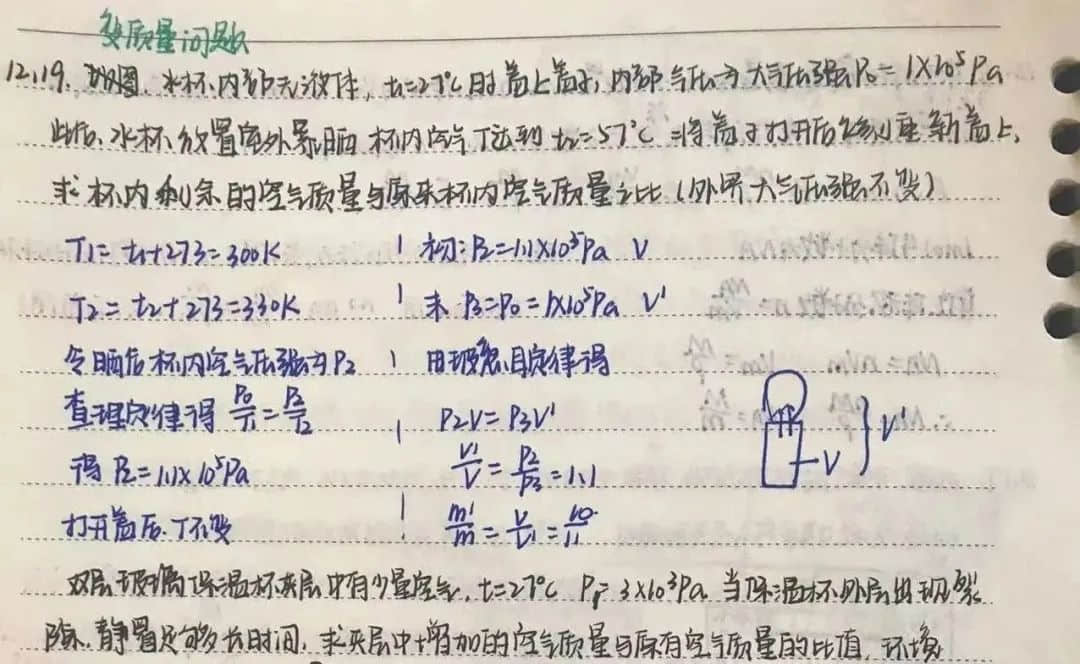 变质量问题
12.19. 如图. 水杯内部无液体, t₁=27℃时盖上盖子, 内部气压为大气压强P₀=1×10⁵Pa
此后, 水杯放置室外暴晒 杯内空气T达到t₂=57℃ 将盖子打开后 重新盖上,
求杯内剩余的空气质量与原来杯内空气质量之比(外界大气压强不变)
T₁=t₁+273=300K | 初: P₂=1.1×10⁵Pa V
T₂=t₂+273=330K | 末 P₃=P₀=1×10⁵Pa V'
令晒后杯内空气压强为P₂ | 由玻意耳定律得
查理定律得 P₀/T₁=P₂/T₂ | P₂V=P₃V'
得 P₂=1.1×10⁵Pa | V'/V=P₂/P₃=1.1
打开盖后. T不变 | m'/m=V/V'=10/11
V V'
双层玻璃保温杯夹层中有少量空气, t=27℃ P₁=3×10³Pa 当保温杯外层出现裂
隙. 静置足够长时间, 求夹层中增加的空气质量与原有空气质量的比值, 环境